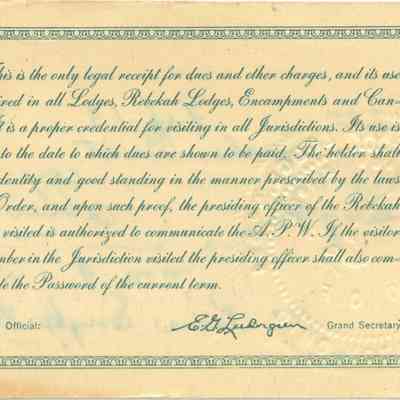 his is the only legal receipt for dues and other charges, and its use
ired in all Lodges, Rebekah Lodges, Encampments and Can-
It is a proper credential for visiting in all Jurisdictions. Its use is
to the date to which dues are shown to be paid. The holder shall
dentity and good standing in the manner prescribed by the laws
Order, and upon such proof, the presiding officer of the Rebekah
visited is authorized to communicate the A.P.W. If the visitor
mber in the Jurisdiction visited the presiding officer shall also com-
te the Password of the current term.
Official: Grand Secretary